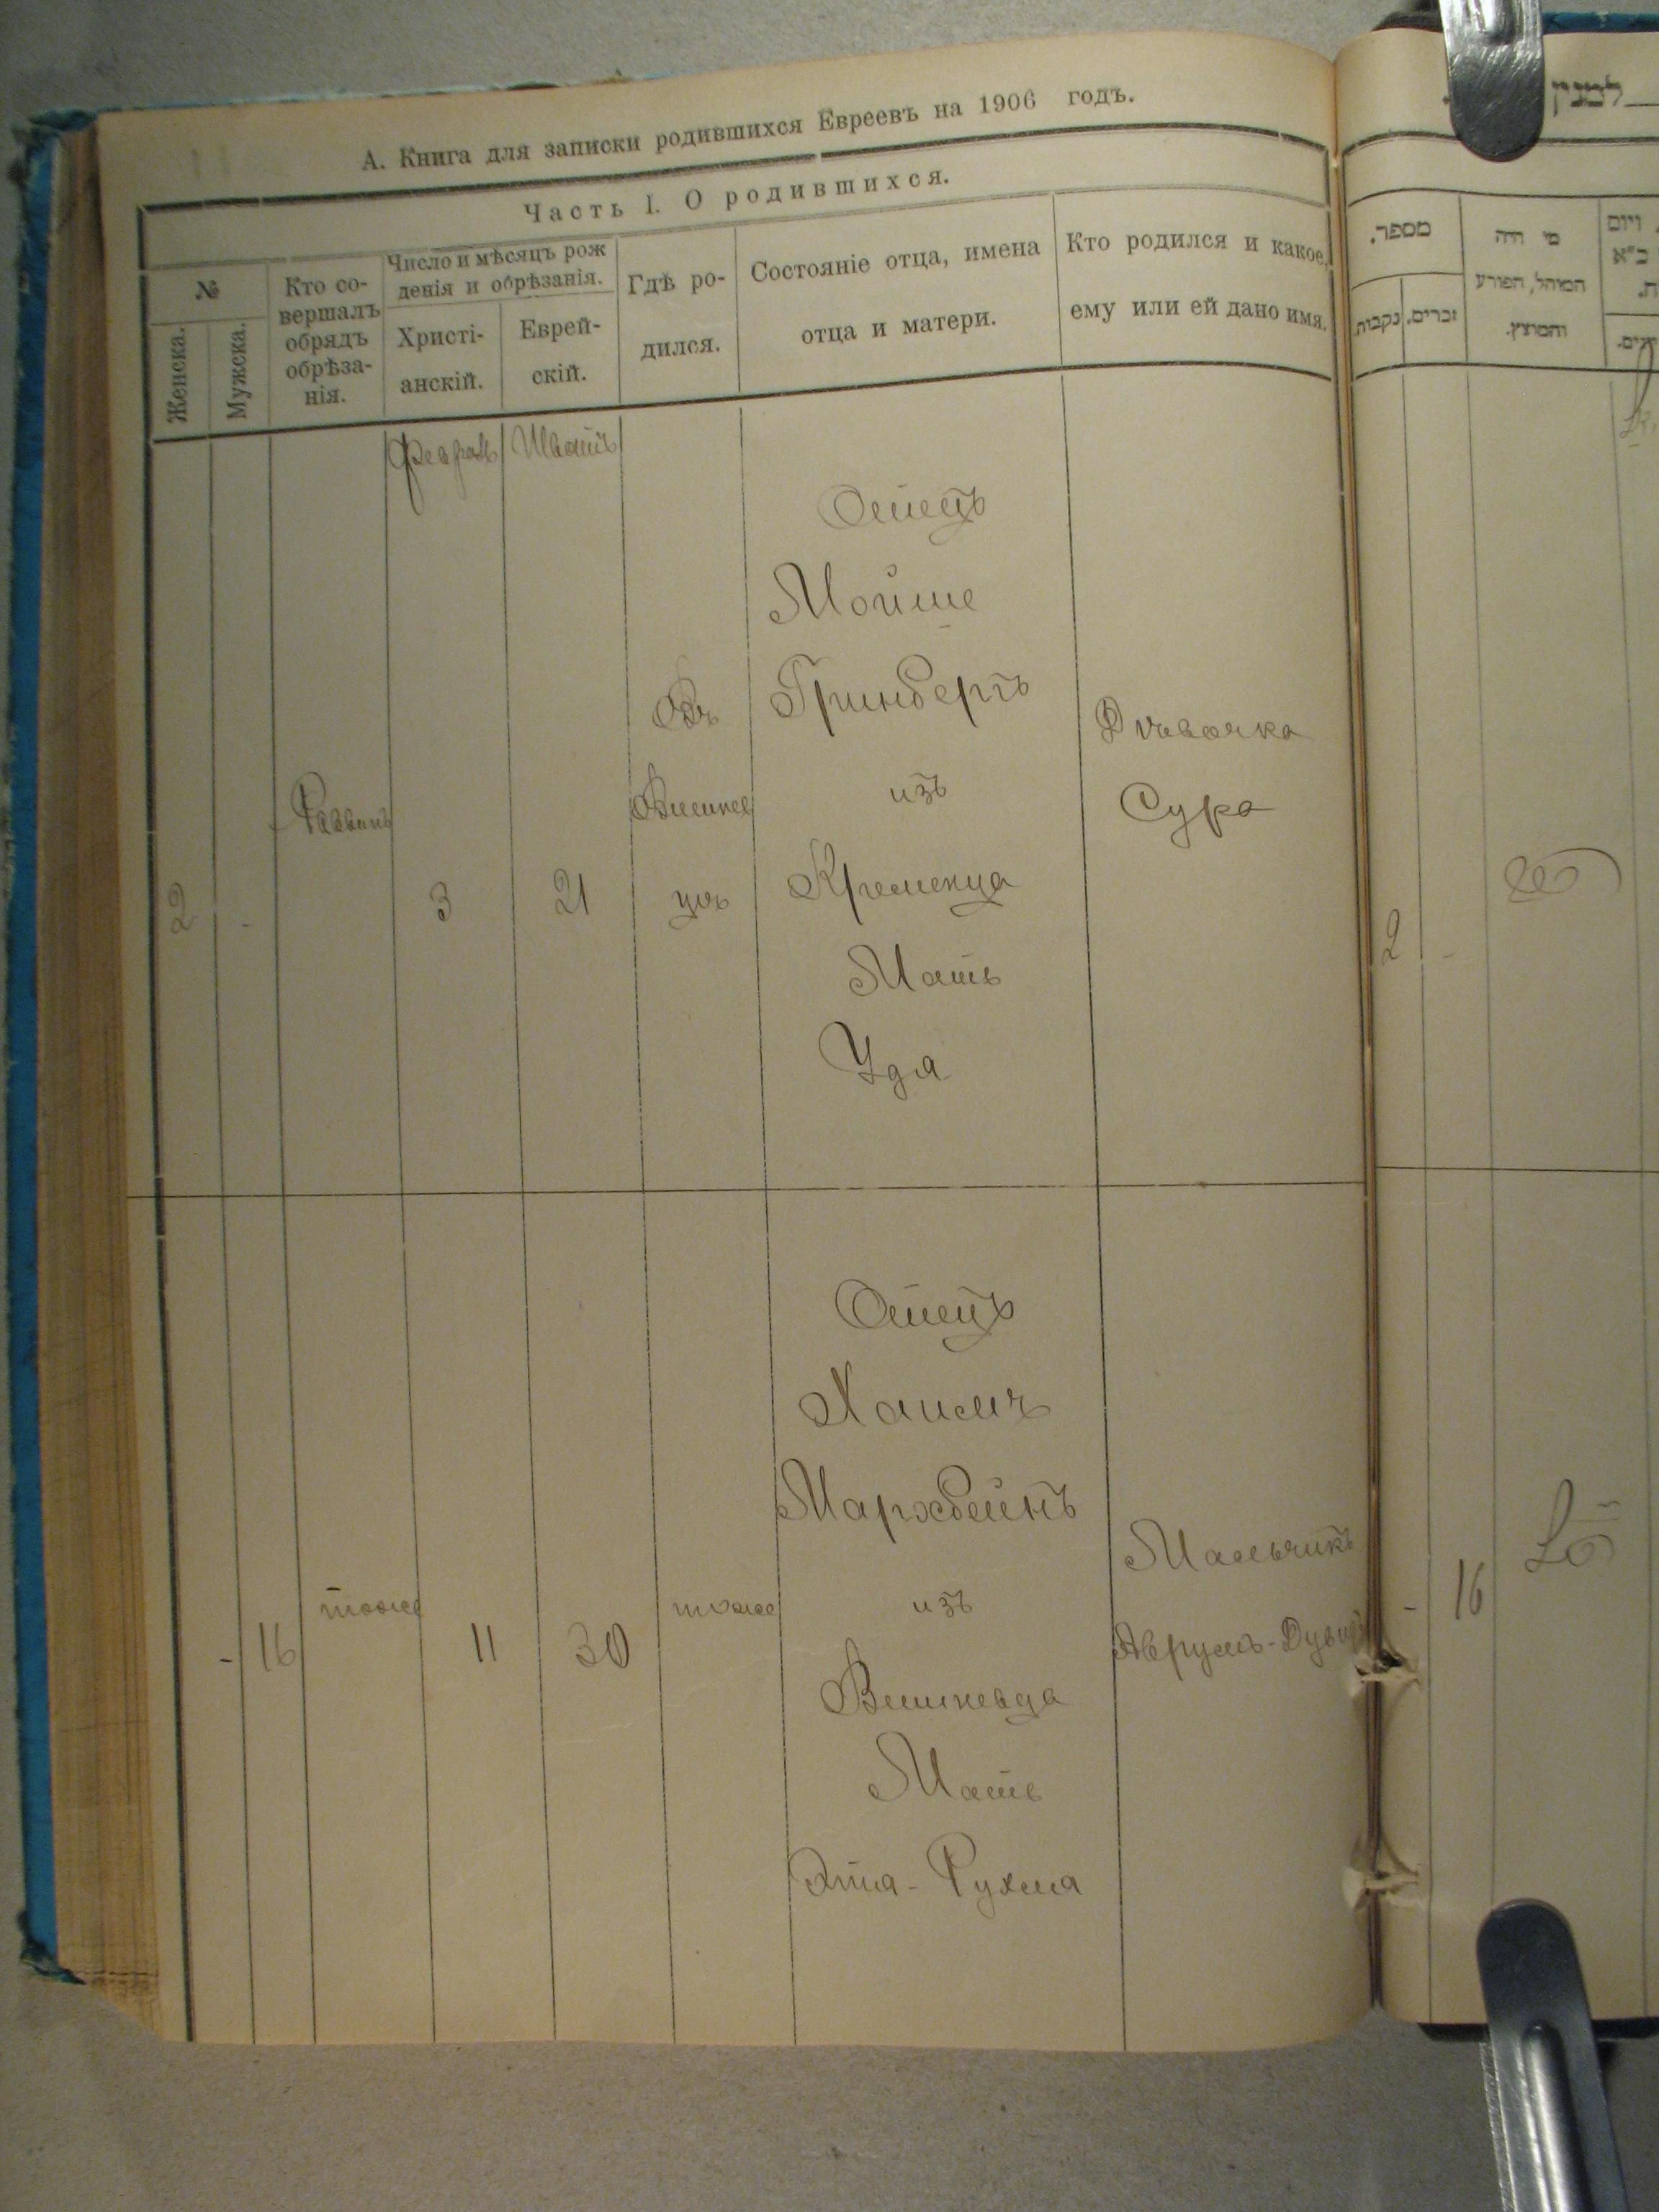 А. Книга для записки родившихся Евреевъ на 1906 годъ.
Часть I. О родившихся.
№
Женска.
Мужска.
Кто со-
вершалъ
обрядъ
обрѣза-
нія.
Число и мѣсяцъ рож
денія и обрѣзанія.
Христі-
анскій.
Еврей-
скій.
Гдѣ ро-
дился.
Состояніе отца, имена
отца и матери.
Кто родился и какое
ему или ей дано имя.
Февраль
Шватъ
2
-
Раввинъ
3
21
Въ
Вишнев
цѣ
Отецъ
Мойше
Гринбергъ
изъ
Кременца
Мать
Удя
Дѣвочка
Сура
-
16
тоже
11
30
тоже
Отецъ
Хаимъ
Мархбейнъ
изъ
Вишневца
Мать
Этя-Рухля
Мальчикъ
Аврумъ-Дувид
למנין
מספר.
נקבות
זכרים.
מי היה
המוהל, הפורע
והמוצץ.
ויום
2
-
-
16